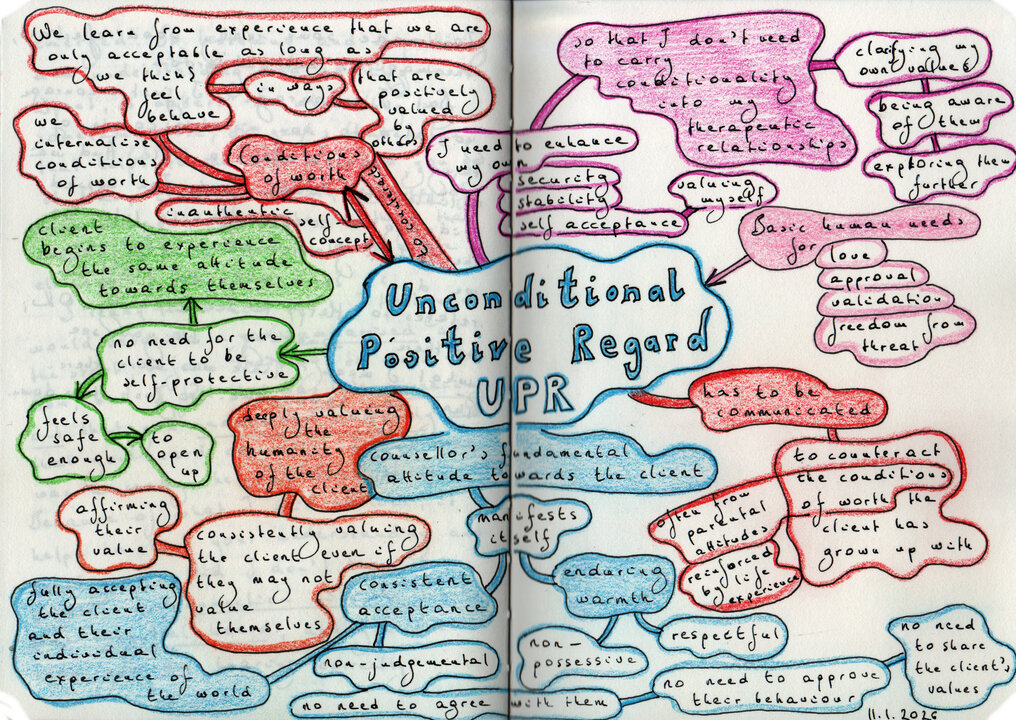 We learn from experience that we are
only acceptable as long as
we think
feel
behave
in ways
that are
positively
valued
by
others
we
internalise
conditions
of worth
conditions
of worth
inauthentic
self
concept
I need to enhance
my own
security
stability
self acceptance
valuing
myself
so that I don't need
to carry
conditionality
into my
therapeutic
relationships
clarifying my
own values
being aware
of them
exploring them
further
Basic human needs
for
love
approval
validation
freedom from
threat
client
begins to experience
the same attitude
towards themselves
no need for the
client to be
self-protective
feels
safe
enough
to
open
up
Unconditional
Positive Regard
UPR
has to be
communicated
to counteract
the conditions
of worth the
client has
grown up with
often from
parental
attitudes
reinforced
by life
experience
deeply valueing
the
humanity
of the
client
consistently valuing
the client even if
they may not
value
themselves
affirming
their
value
counsellor's fundamental
attitude towards the client
manifests
itself
consistent
acceptance
fully accepting
the client
and their
individual
experience of
the world
non-judgemental
no need to agree with them
enduring
warmth
non-
possessive
respectful
no need to approve
their behaviour
no need
to share
the client's
values
11.1.2026